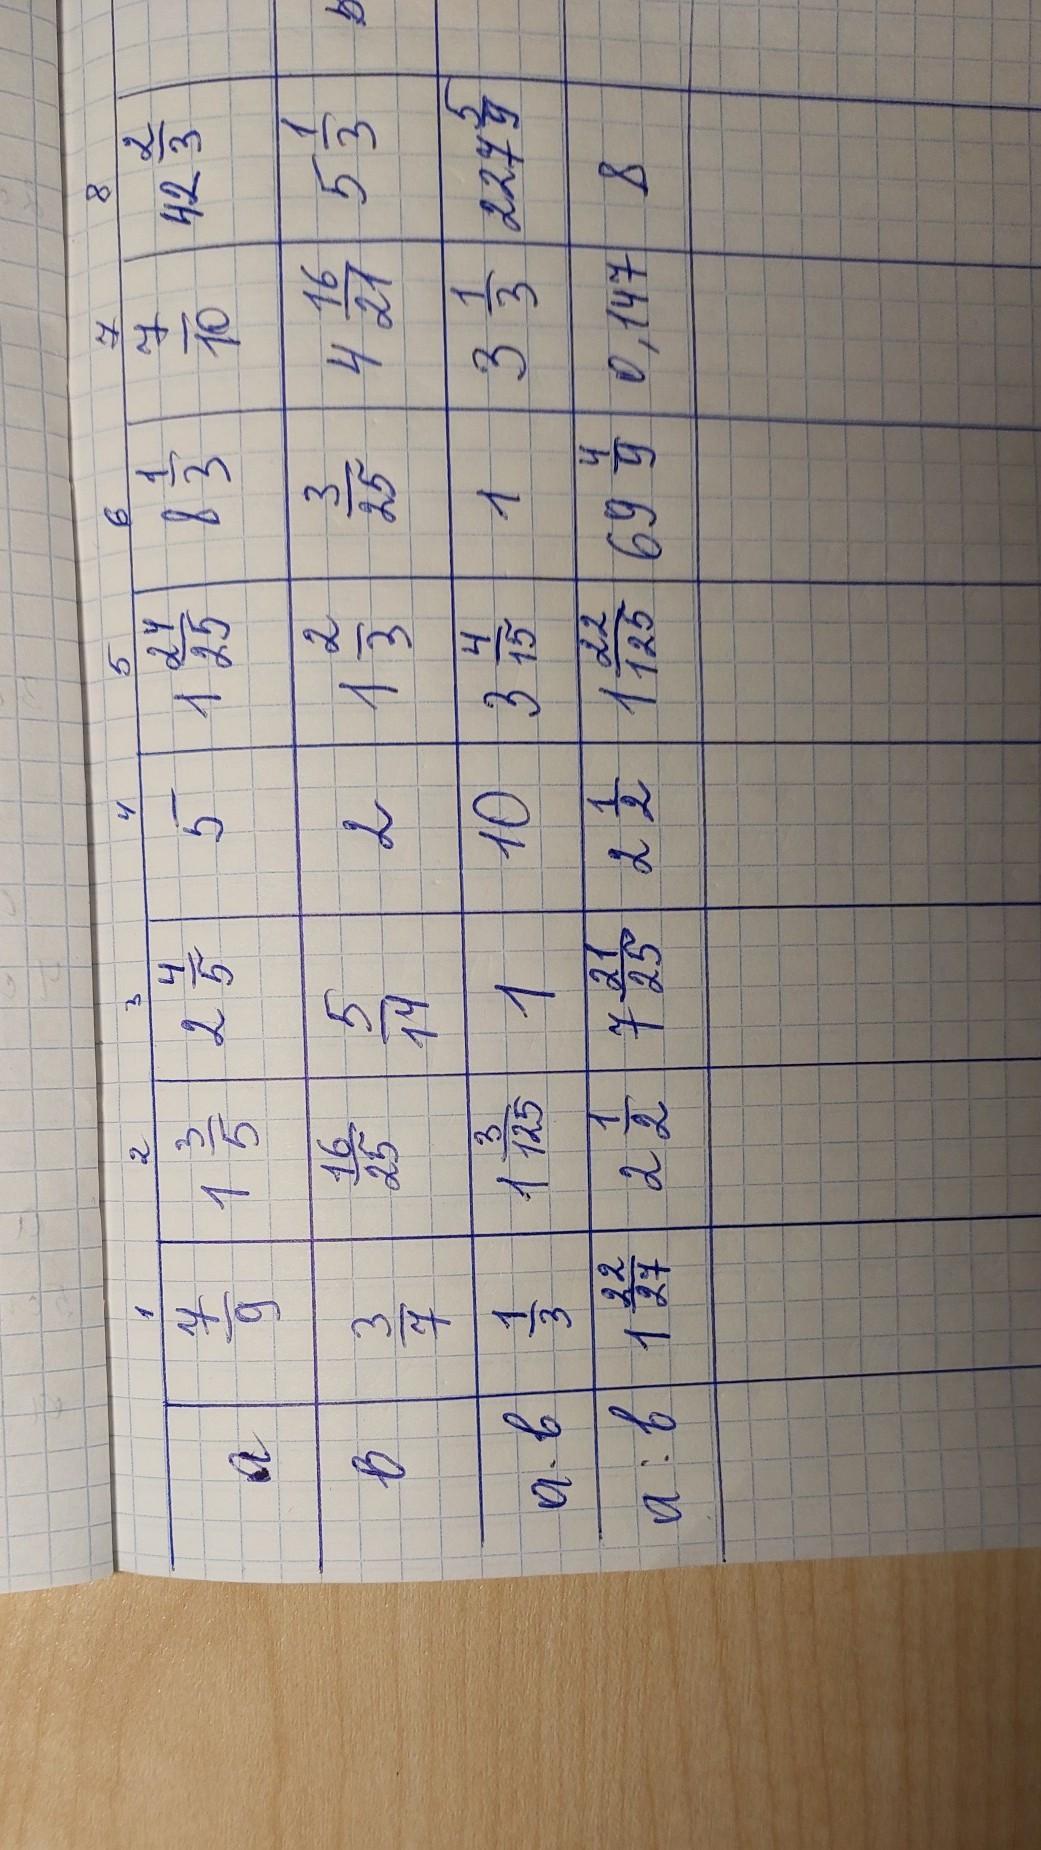 1 2 3 4 5 6 7 8
a 7/9 1 3/5 2 4/5 5 1 24/25 8 1/3 7/10 42 2/3
b 3/7 16/25 5/14 2 1 2/3 3/25 4 16/21 5 1/3
a · b 1/3 1 3/125 1 10 3 4/15 1 3 1/3 227 5/9
a : b 1 22/27 2 1/2 7 21/25 2 1/2 1 22/125 69 4/9 0,147 8